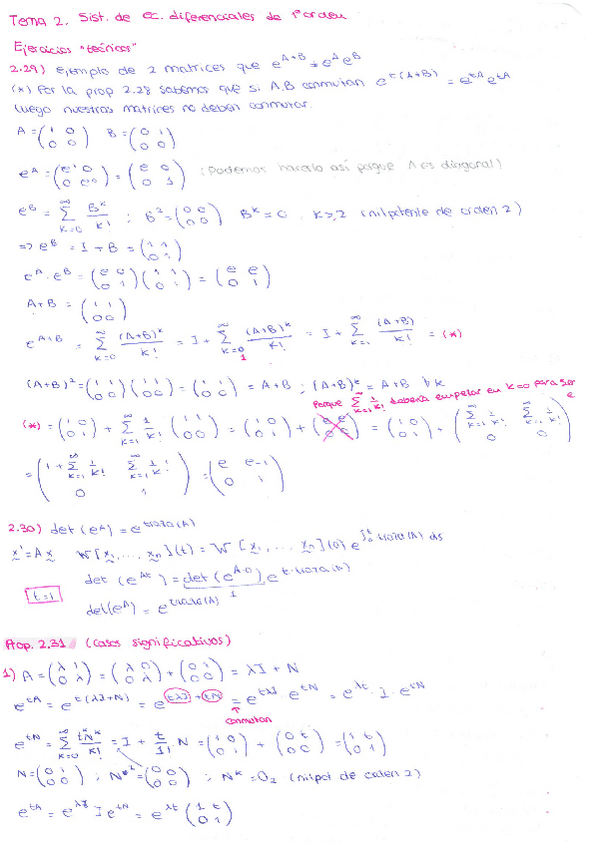 Tema 2. Sist. de ec. diferenciales de 1er orden
Ejercicios "teóricos"
2.29) Ejemplo de 2 matrices que e^{A+B} ≠ e^A e^B
(*) Por la prop 2.28 sabemos que si A,B conmutan e^{t(A+B)} = e^{tA} e^{tB}
Luego nuestras matrices no deben conmutar.
A = (1 0; 0 0) B = (0 1; 0 0)
e^A = (e^1 0; 0 e^0) = (e 0; 0 1) (Podemos hacerlo así porque A es diagonal)
e^B = Σ_{k=0}^∞ B^k/k! ; B^2 = (0 0; 0 0) B^k = 0, k≥2 (nilpotente de orden 2)
⇒ e^B = I + B = (1 1; 0 1)
e^A · e^B = (e 0; 0 1)(1 1; 0 1) = (e e; 0 1)
A+B = (1 1; 0 0)
e^{A+B} = Σ_{k=0}^∞ (A+B)^k/k! = I + Σ_{k=1}^∞ (A+B)^k/k! = I + Σ_{k=1}^∞ (A+B)/k! = (*)
(A+B)^2 = (1 1; 0 0)(1 1; 0 0) = (1 1; 0 0) = A+B ; (A+B)^k = A+B ∀k
Porque Σ_{k=1}^∞ 1/k! debería empezar en k=0 para ser e
(*) = (1 0; 0 1) + Σ_{k=1}^∞ 1/k! (1 1; 0 0) = (1 0; 0 1) + (e e; 0 0) = (1 0; 0 1) + (Σ_{k=1}^∞ 1/k! Σ_{k=1}^∞ 1/k!; 0 0)
= (1+Σ_{k=1}^∞ 1/k! Σ_{k=1}^∞ 1/k!; 0 1) = (e e-1; 0 1)
2.30) det(e^A) = e^{traza(A)}
x' = Ax W[x_1,...,x_n](t) = W[x_1,...,x_n](0) e^{∫_0^t traza(A) ds}
det(e^{At}) = det(e^{A·0}) e^{t·traza(A)}
1
t=1
det(e^A) = e^{traza(A)}
Prop. 2.31 (casos significativos)
1) A = (λ 1; 0 λ) = (λ 0; 0 λ) + (0 1; 0 0) = λI + N
e^{tA} = e^{t(λI+N)} = e^{tλI + tN} = e^{tλI} · e^{tN} = e^{λt} · I · e^{tN}
conmutan
e^{tN} = Σ_{k=0}^∞ t^k N^k/k! = I + t/1! N = (1 0; 0 1) + (0 t; 0 0) = (1 t; 0 1)
N = (0 1; 0 0) ; N^2 = (0 0; 0 0) ; N^k = O_2 (nilpot de orden 2)
e^{tA} = e^{λt} I e^{tN} = e^{λt} (1 t; 0 1)